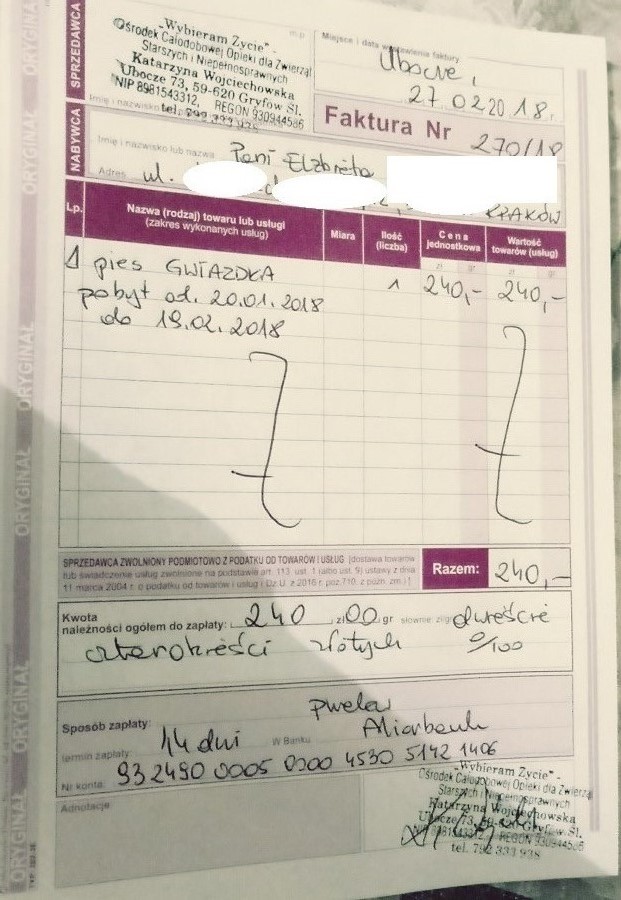 SPRZEDAWCA
„Wybieram Życie" -
Ośrodek Całodobowej Opieki dla Zwierząt
Starszych i Niepełnosprawnych
Katarzyna Wojciechowska
Ubocze 73, 59-620 Gryfów Śl.
NIP 8981543312, REGON 930944586
tel. 792 333 938
Imię i nazwisko
m.p.
Miejsce i data wystawienia faktury
Ubocze,
27.02.2018r.
Faktura Nr 270/18
NABYWCA
Imię i nazwisko lub nazwa Pani Elżbieta
Adres ul. KRAKÓW
Lp. Nazwa (rodzaj) towaru lub usługi (zakres wykonanych usług) Miara Ilość (liczba) Cena jednostkowa Wartość towarów (usług)
zł gr zł gr
1 pies GWIAZDKA 1 240,- 240,-
pobyt od. 20.01.2018
do 19.02.2018
SPRZEDAWCA ZWOLNIONY PODMIOTOWO Z PODATKU OD TOWARÓW I USŁUG [dostawa towarów
lub świadczenie usług zwolnione na podstawie art. 113 ust. 1 (albo ust. 9) ustawy z dnia
11 marca 2004 r. o podatku od towarów i usług i Dz.U. z 2016 r. poz.710, z późn. zm.]
Razem: 240,-
Kwota
należności ogółem do zapłaty: 240 zł 00 gr słownie zł gr dwieście
czterdzieści złotych 0/100
Sposób zapłaty: przelew
termin zapłaty: 14 dni W Banku Aliorbank
Nr konta: 93 2490 0005 0000 4530 5142 1406
Adnotacje
„Wybieram Życie" -
Ośrodek Całodobowej Opieki dla Zwierząt
Starszych i Niepełnosprawnych
Katarzyna Wojciechowska
Ubocze 73, 59-620 Gryfów Śl.
NIP 8981543312, REGON 930944586
tel. 792 333 938
ORYGINAŁ ORYGINAŁ ORYGINAŁ ORYGINAŁ ORYGINAŁ ORYGINAŁ ORYGINAŁ